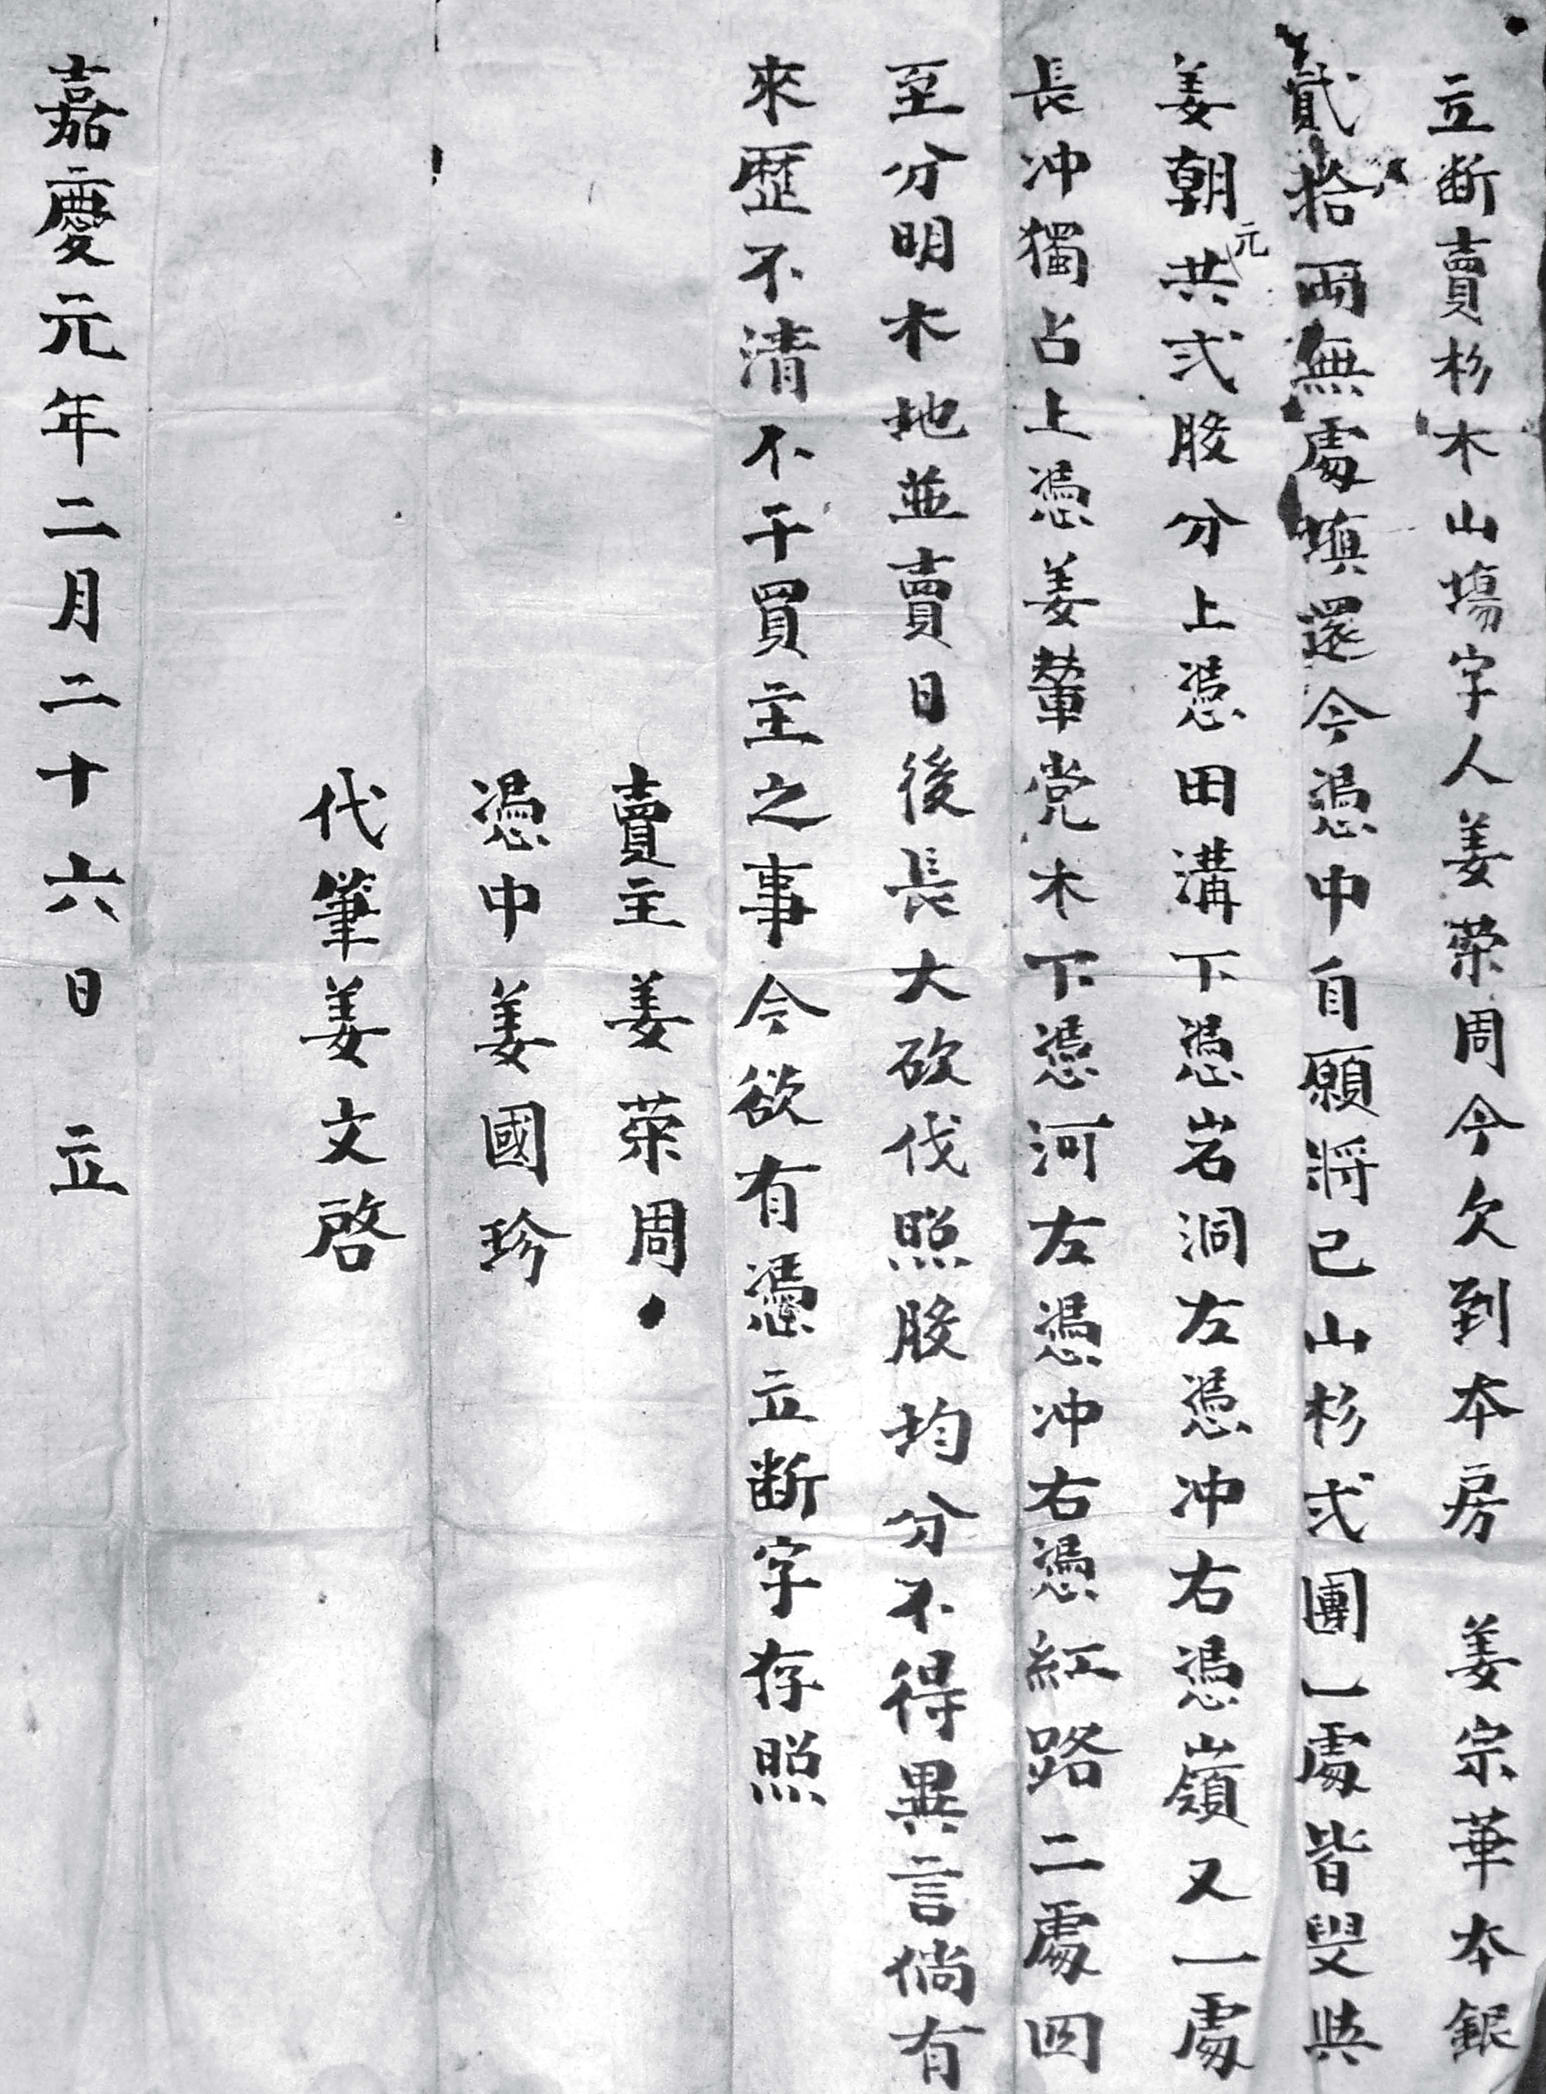 立斷賣杉木山塲字人姜荣周今欠到本房　姜宗華本銀
貮拾両無處填還今憑中自願將己山杉弍團一處皆叟與
姜朝元共弍股分上憑田溝下憑岩洞左憑冲右憑嶺又一處
長冲獨占上憑姜輦党木下憑河左憑冲右憑紅路二處四
至分明木地並賣日後長大砍伐照股均分不得異言倘有
來歷不清不干買主之事今欲有憑立斷字存照
賣主姜荣周
憑中姜國珍
代筆姜文啓
嘉慶元年二月二十六日　立